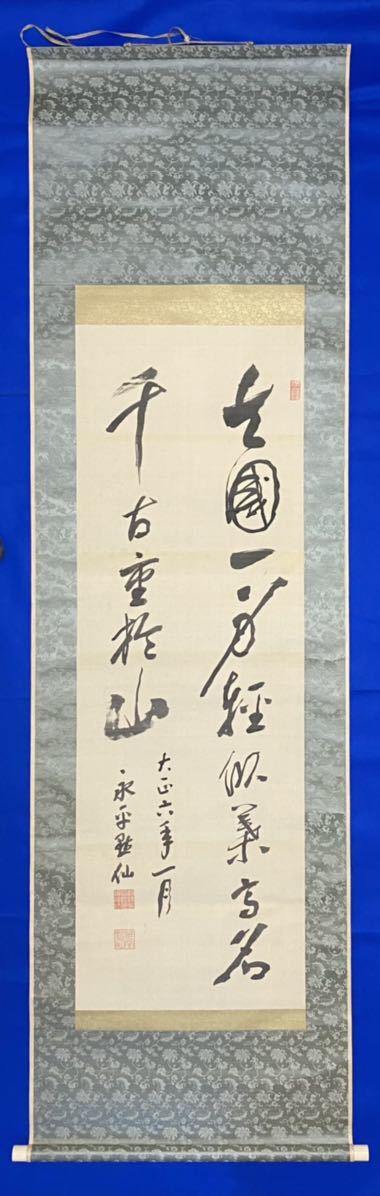 為國一身輕似葉高名
千古重於山
大正六年一月
永平黙仙